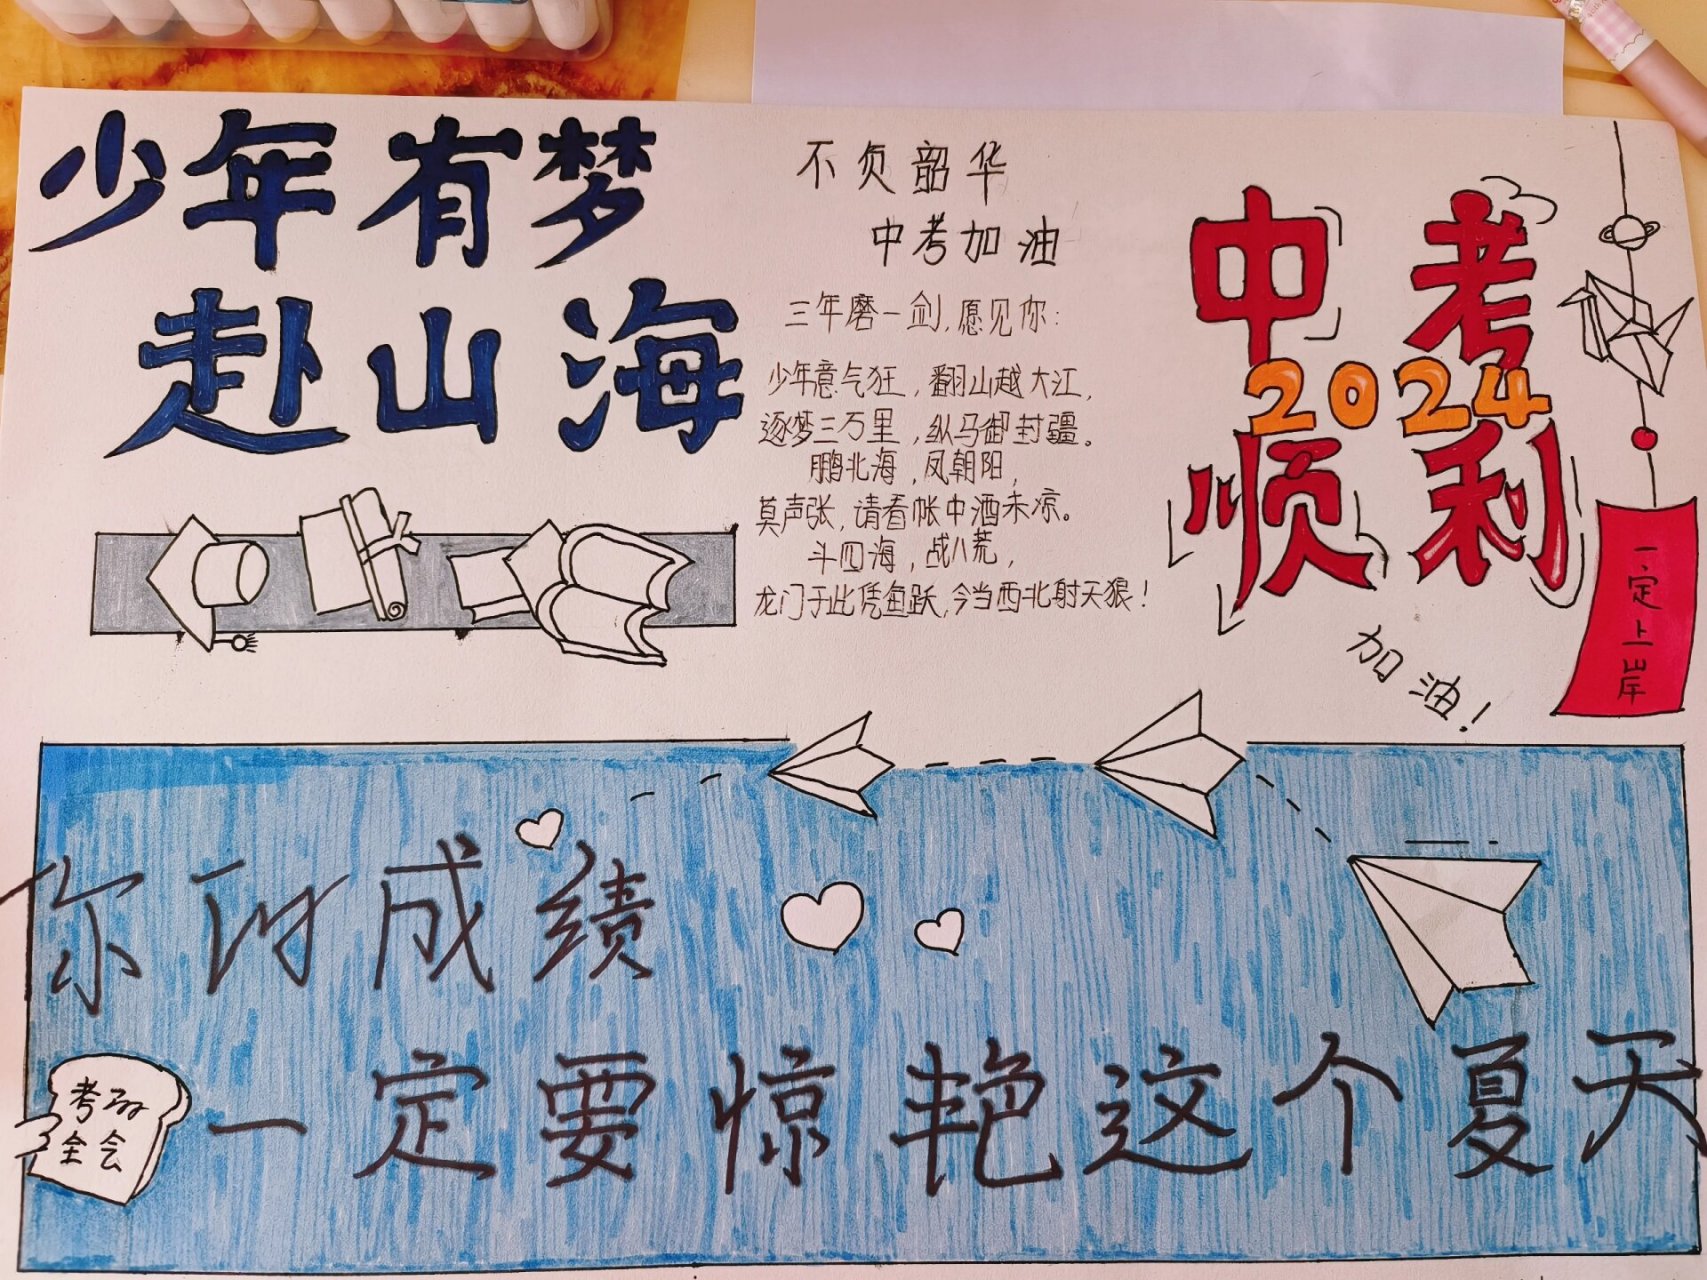 少年有梦
赴山海
不负韶华
中考加油
三年磨一剑,愿见你:
少年意气狂,翻山越大江,
逐梦三万里,纵马御封疆。
鹏北海,凤朝阳,
莫声张,请看帐中酒未凉。
斗四海,战八荒,
龙门于此凭鱼跃,今当西北射天狼!
中考
2024
顺利
加油!
一定上岸
你的成绩
一定要惊艳这个夏天
考的
全会